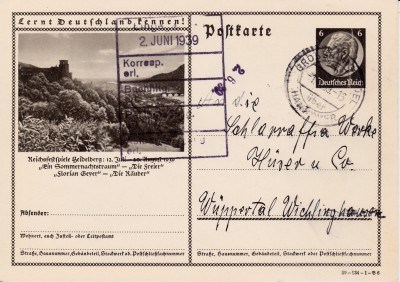 Lernt Deutschland kennen!
Postkarte
6 6
Deutsches Reich
2. JUNI 1939
Korresp.
erl.
An die
Schlarraffia Werke
Hüser u Co.
Wuppertal Wichlinghausen
Reichsfestspiele Heidelberg: 12. Juli – 20. August 1939
"Ein Sommernachtstraum" – "Die Freier"
"Florian Geyer" – "Die Räuber"
Absender:
Wohnort, auch Zustell- oder Leitpostamt
Straße, Hausnummer, Gebäudeteil, Stockwerk od. Postschließfachnummer
Straße, Hausnummer, Gebäudeteil, Stockwerk od. Postschließfachnummer